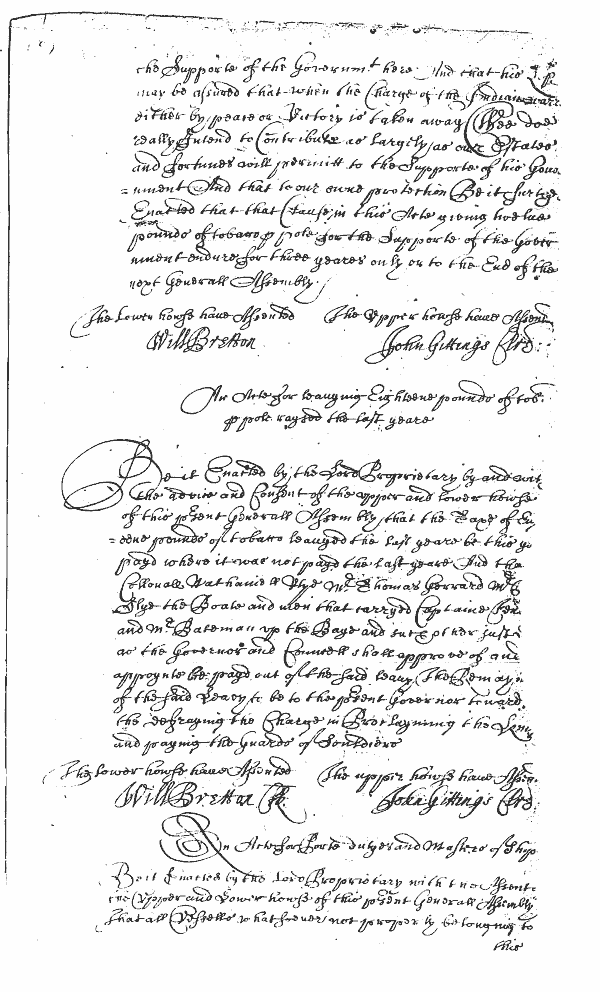 the Supporte of the Governmt here And that his Lp
may be assured that when the Charge of the Indian warr
either by peace or Victory is taken away Wee doe
really Intend to Contribute as largely as our Estates
and fortunes will permitt to the Supporte of his Gover
=nment And that to our owne protection Be it further
Enacted that that Clause in this Acte giving twelve
pounds of tobaco p pole for the Supporte of the Gover
nment endure for three yeares only or to the End of the
next Generall Assembly
The Lower howse have Assented The Vpper howse have Assent
Will Bretton John Gittings Clrs:
An Acte for leauying Eighteene pounds of tob:
p pole raysed the last yeare
Be it Enacted by the Lord Proprietary by and wit
the advice and Consent of the vpper and lower howse
of this prsent Generall Assembly that the Taxe of Ei
=eene pounds of tobaco leauyed the last yeare be this ye
payd where it was not payd the last yeare And tha
Collonell Nathaniell Vtye Mr Thomas Gerrard Mr
Slye the Boate and men that carryed Captaine
and Mr Bateman vp the Baye and such other Just
as the Governor and Councell shall approve of and
appoynte be payd out of the said leauy The Remayn
of the said Leavy to be to the prsent Governor toward
the defraying the Charge in Proclayming the
and paying the Guards of Souldiers
The Lower howse have Assented The vpper howse have Assen.
Will Bretton Clk. John Gittings Clrs
An Acte for Porte dutyes and Masters of Ship
Be it Enacted by the Lord Proprietary with the Assent
the Vpper and Lower howse of this prsent Generall Assembly
That all Vessells whatsoever not properly belonging to
this